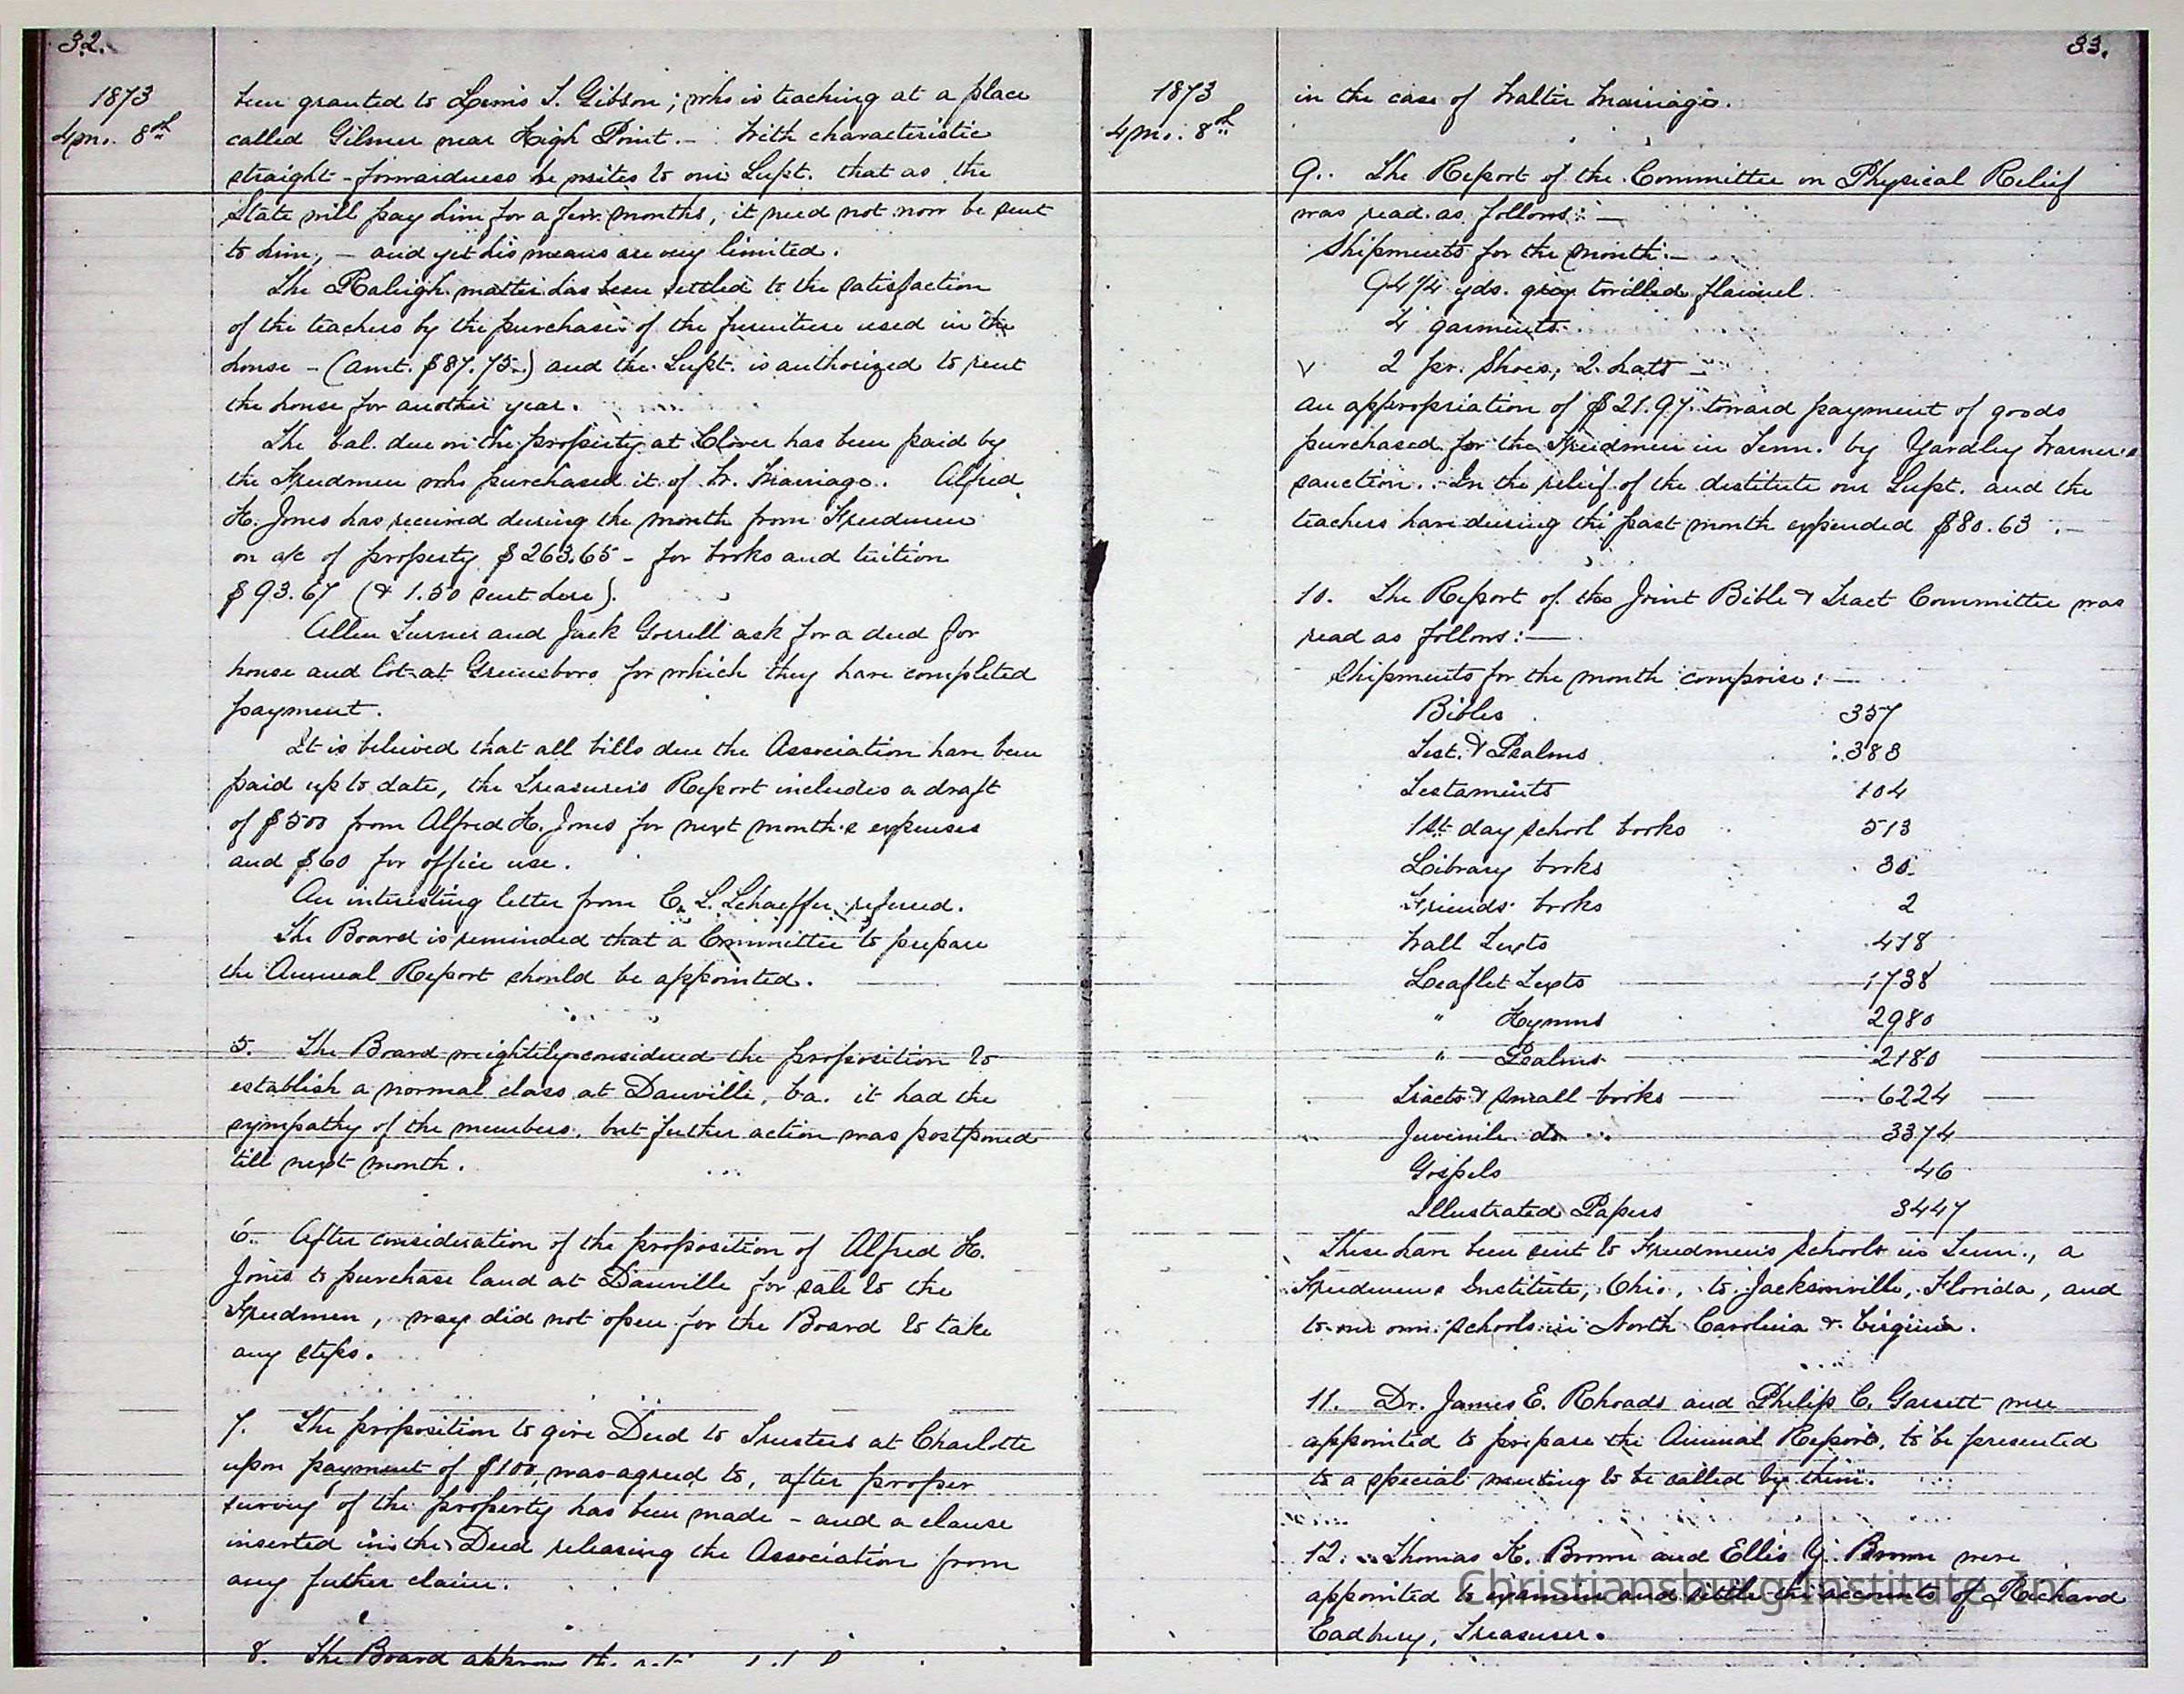 32.
1873
4 mo. 8th
been granted to Lewis S. Gibson; who is teaching at a place
called Gilmer near High Point. — With characteristic
straight-forwardness he writes to our Supt. that as the
State will pay him for a few months, it need not now be sent
to him, — and yet his means are very limited.
The Raleigh matter has been settled to the satisfaction
of the teachers by the purchase of the furniture used in the
house — (amt. $87.75) and the Supt. is authorized to rent
the house for another year.
The bal. due on the property at Clover has been paid by
the Freedmen who purchased it of W. Marriage. Alfred
H. Jones has received during the month from Freedmen
on a/c of property $263.65 — for books and tuition
$93.67 (& 1.50 sent here).
Allen Turner and Jack Gorrell ask for a deed for
house and lot at Greensboro for which they have completed
payment.
It is believed that all bills due the Association have been
paid up to date, the Treasurer's Report includes a draft
of $500 from Alfred H. Jones for next month's expenses
and $60 for office use.
An interesting letter from C. L. Schaeffer referred.
The Board is reminded that a Committee to prepare
the Annual Report should be appointed.
5. The Board weightily considered the proposition to
establish a normal class at Danville, Va. it had the
sympathy of the members, but further action was postponed
till next month.
6. After consideration of the proposition of Alfred H.
Jones to purchase land at Danville for sale to the
Freedmen, way did not open for the Board to take
any steps.
7. The proposition to give Deed to Trustees at Charlotte
upon payment of $100, was agreed to, after proper
survey of the property has been made — and a clause
inserted in the Deed releasing the Association from
any further claim.
8. The Board
33.
1873
4 mo. 8th
in the case of Walter Marriage.
9. The Report of the Committee on Physical Relief
was read as follows: —
Shipments for the month: —
94 1/4 yds. gray twilled flannel
4 garments
v 2 pr. Shoes; 2 hats —
an appropriation of $21.97 toward payment of goods
purchased for the Freedmen in Tenn. by Yardley Warner's
sanction. In the relief of the destitute our Supt. and the
teachers have during the past month expended $80.63 . —
10. The Report of the Joint Bible & Tract Committee was
read as follows: —
Shipments for the month comprise: —
Bibles 357
Test. & Psalms 383
Testaments 104
1st day school books 513
Library books 30
Friends' books 2
Wall Texts 418
Leaflet Texts 1738
" Hymns 2980
" Psalms 2180
Tracts & small books 6224
Juvenile do 3374
Gospels 46
Illustrated Papers 3447
These have been sent to Freedmen's Schools in Tenn., a
Freedmen's Institute, Ohio, to Jacksonville, Florida, and
to our own schools in North Carolina & Virginia.
11. Dr. James E. Rhoads and Philip C. Garrett were
appointed to prepare the Annual Report, to be presented
to a special meeting to be called by them.
12. Thomas H. Brown and Ellis Y. Brown were
appointed to examine and settle the accounts of Richard
Cadbury, Treasurer.
Christiansburg Institute, Inc